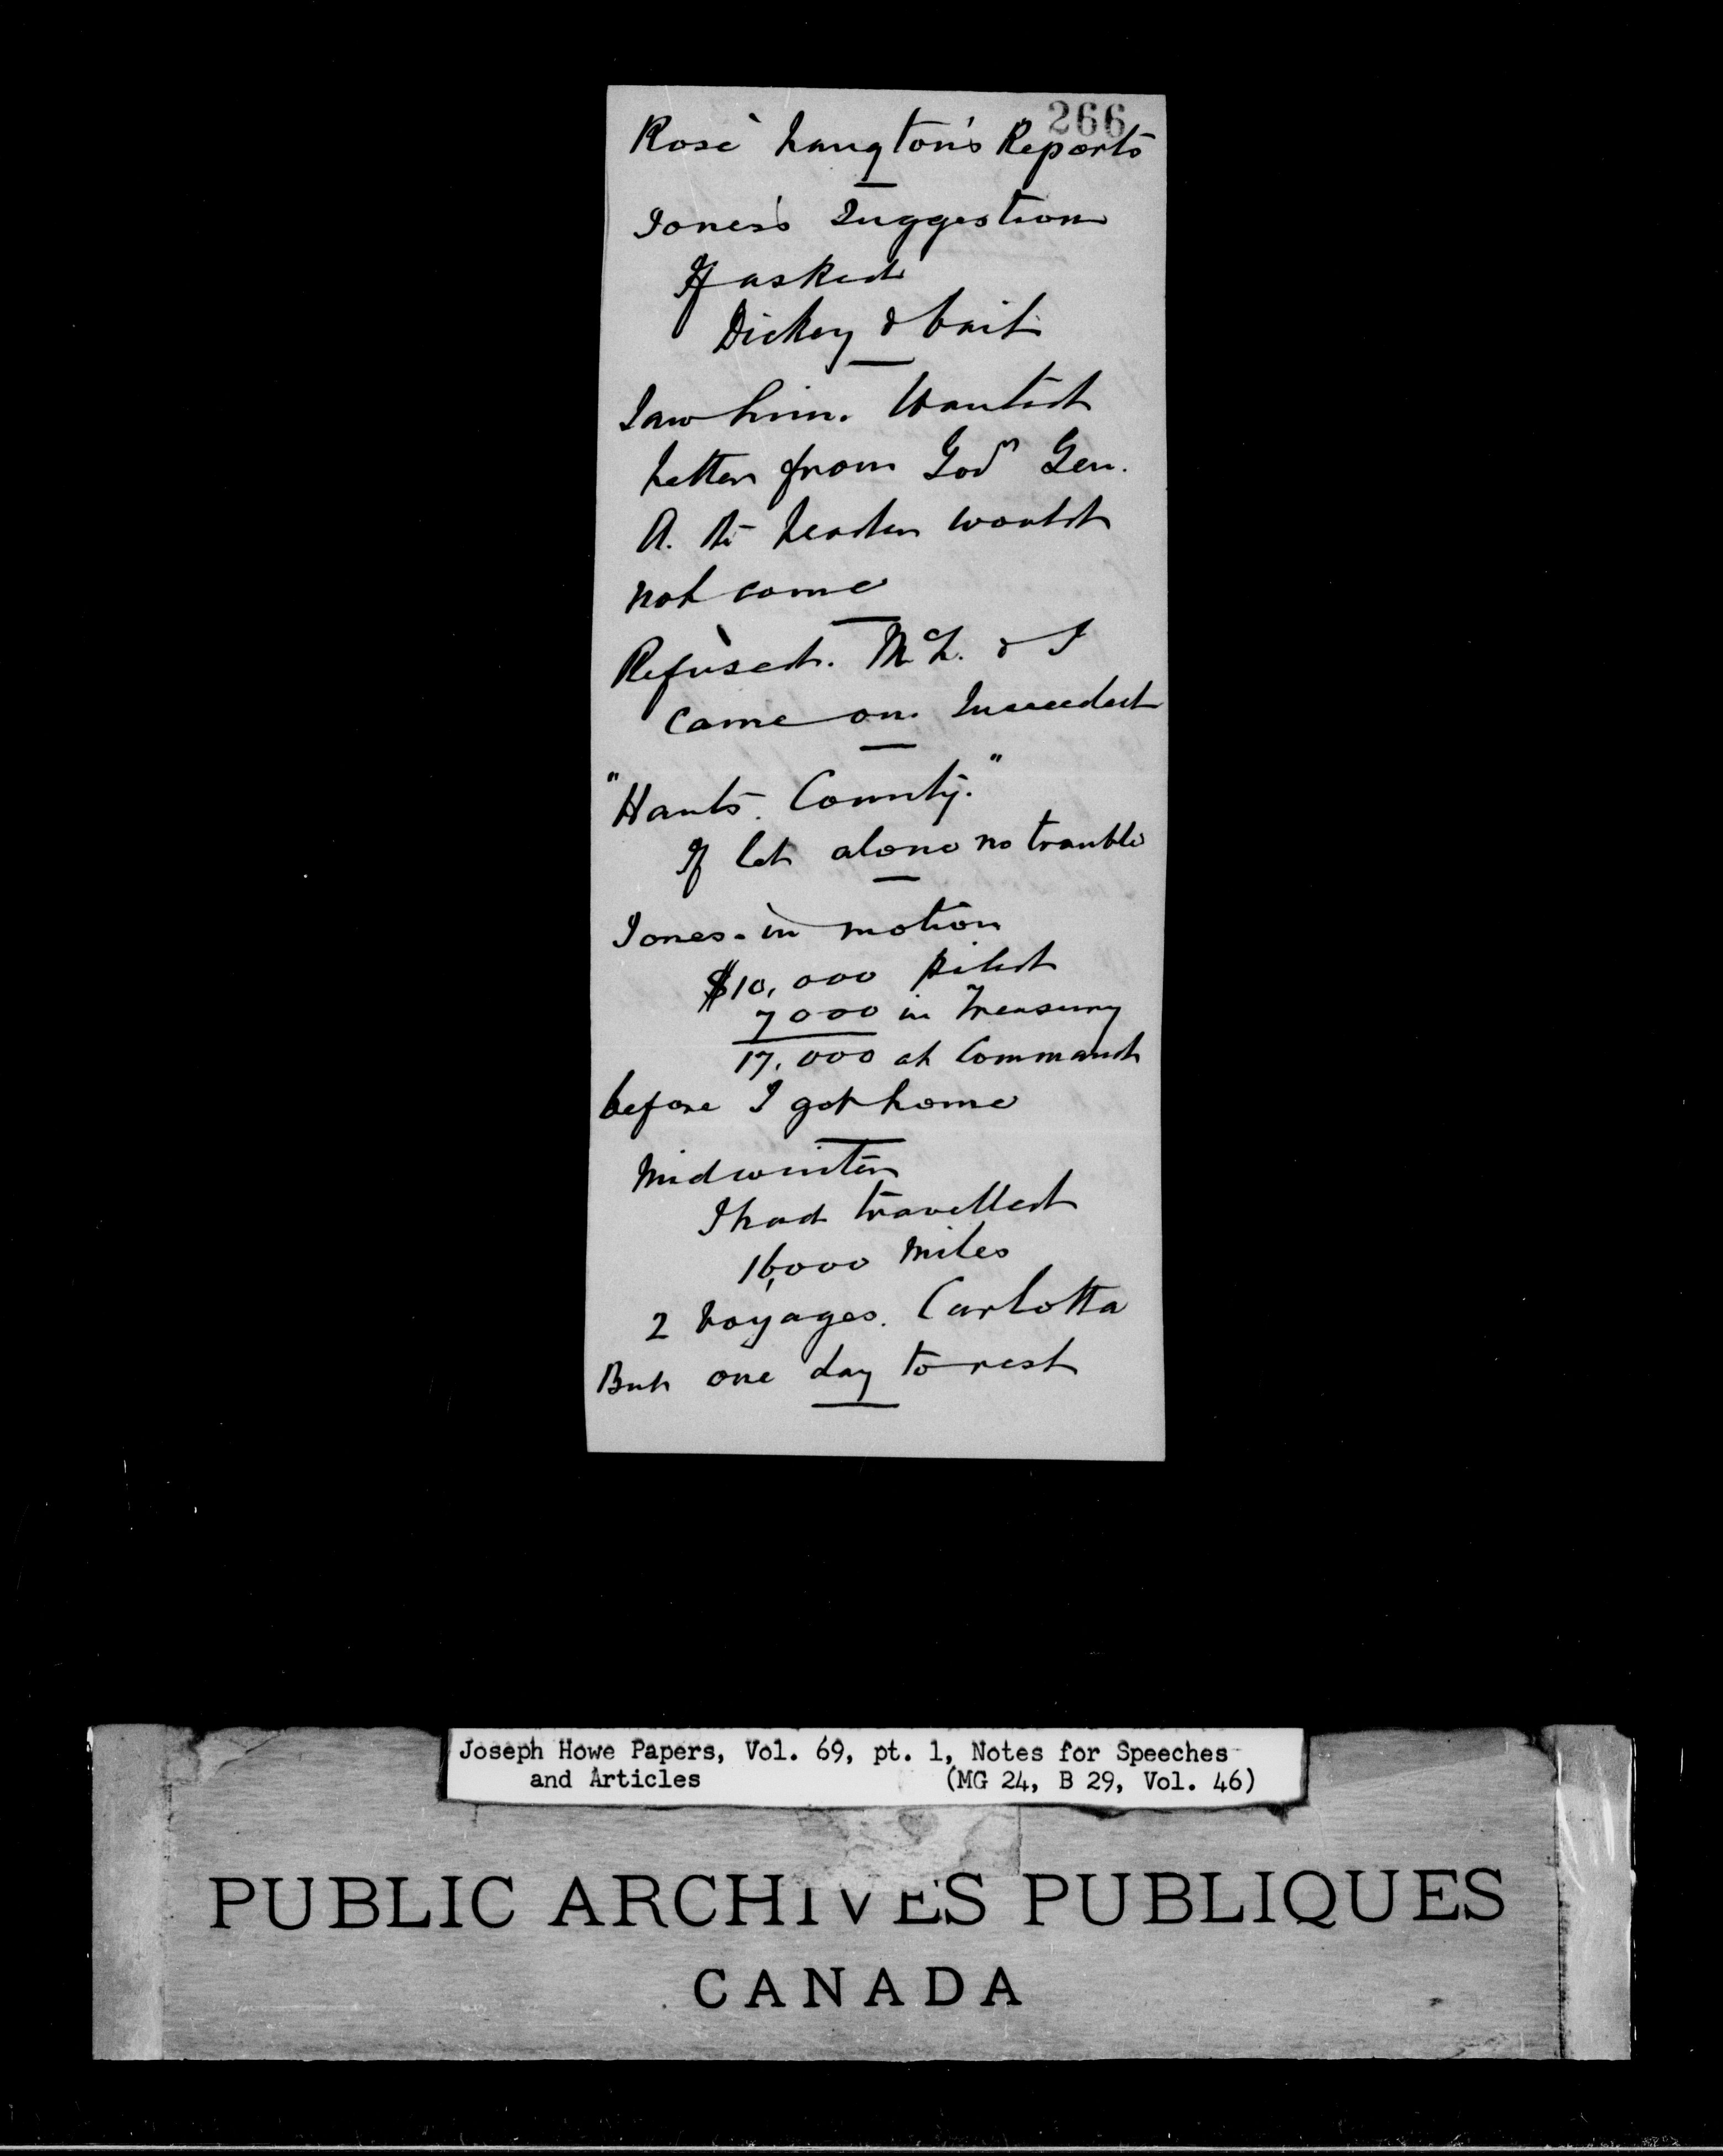 266
Rose Langton's Reports
Jones's Suggestion
If asked
Dickey & Tait
Saw him. Wanted
Letter from Govr Gen.
A. the Leader would
not come
Refused. McL. & I
came on. Succeeded
"Hants County."
If let alone no trouble
Jones. in motion
$10,000 piled
7000 in Treasury
17,000 at Command
before I got home
Midwinter
I had travelled
16,000 miles
2 Voyages. Carlotta
But one day to rest
Joseph Howe Papers, Vol. 69, pt. 1, Notes for Speeches
and Articles (MG 24, B 29, Vol. 46)
PUBLIC ARCHIVES PUBLIQUES
CANADA